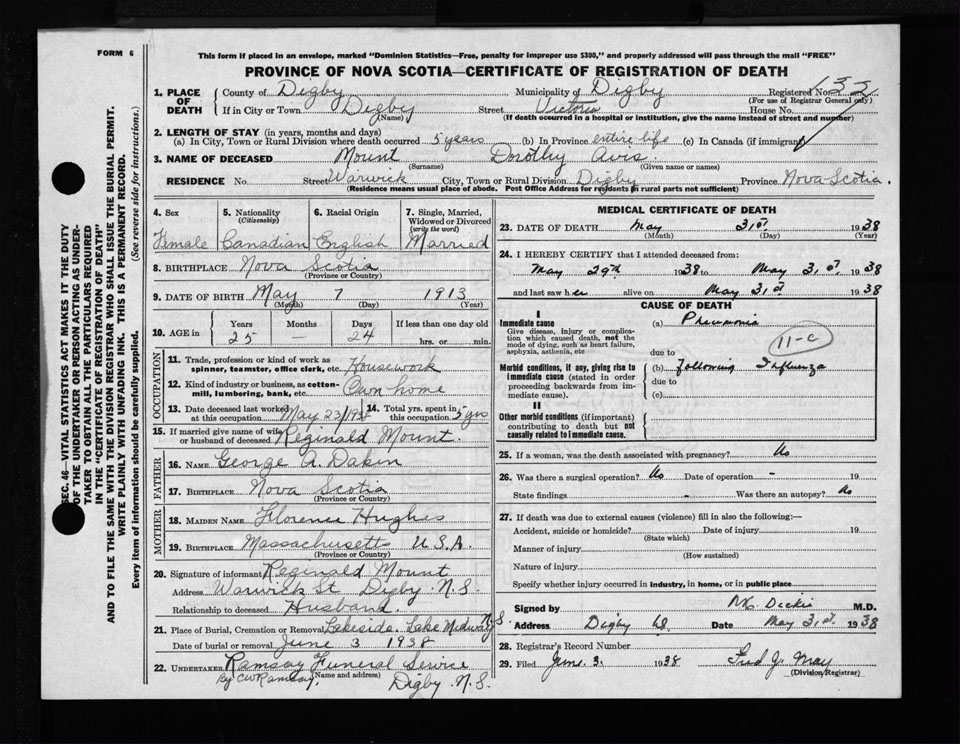 FORM 6
This form if placed in an envelope, marked "Dominion Statistics—Free, penalty for improper use $300," and properly addressed will pass through the mail "FREE"
PROVINCE OF NOVA SCOTIA—CERTIFICATE OF REGISTRATION OF DEATH
1. PLACE OF DEATH County of Digby Municipality of Digby Registered No. 132
(For use of Registrar General only)
If in City or Town Digby Street Victoria House No.
(Name) (If death occurred in a hospital or institution, give the name instead of street and number)
2. LENGTH OF STAY (in years, months and days)
(a) In City, Town or Rural Division where death occurred 5 years (b) In Province entire life (c) In Canada (if immigrant)
3. NAME OF DECEASED Mount Dorothy Avis.
(Surname) (Given name or names)
RESIDENCE No. Street Warwick City, Town or Rural Division Digby Province Nova Scotia.
(Residence means usual place of abode. Post Office Address for residents in rural parts not sufficient)
4. Sex 5. Nationality (Citizenship) 6. Racial Origin 7. Single, Married, Widowed or Divorced (write the word)
Female Canadian English Married
8. BIRTHPLACE Nova Scotia
(Province or Country)
9. DATE OF BIRTH May 7 1913
(Month) (Day) (Year)
10. AGE in Years Months Days If less than one day old
25 — 24 hrs. or min.
OCCUPATION
11. Trade, profession or kind of work as spinner, teamster, office clerk, etc. Housework
12. Kind of industry or business, as cotton-mill, lumbering, bank, etc. Own home
13. Date deceased last worked at this occupation May 23/1938 14. Total yrs. spent in this occupation 5 yrs
15. If married give name of wife or husband of deceased Reginald Mount.
FATHER
16. NAME George A. Dakin
17. BIRTHPLACE Nova Scotia
(Province or Country)
MOTHER
18. MAIDEN NAME Florence Hughes
19. BIRTHPLACE Massachusetts U.S.A.
(Province or Country)
20. Signature of informant Reginald Mount
Address Warwick St Digby N.S.
Relationship to deceased Husband.
21. Place of Burial, Cremation or Removal Lakeside. Lake Midway N.S.
Date of burial or removal June 3 1938
22. UNDERTAKER Ramsay Funeral Service
(Name and address)
By CW Ramsay. Digby N.S.
MEDICAL CERTIFICATE OF DEATH
23. DATE OF DEATH May 31st 1938
(Month) (Day) (Year)
24. I HEREBY CERTIFY that I attended deceased from:
May 29th 1938 to May 31st 1938
and last saw her alive on May 31st 1938
CAUSE OF DEATH
I
Immediate cause (a) Pneumonia
Give disease, injury or complication which caused death, not the mode of dying, such as heart failure, asphyxia, asthenia, etc
11-c
due to
Morbid conditions, if any, giving rise to immediate cause (stated in order proceeding backwards from immediate cause). (b) following Influenza
due to
(c)
II
Other morbid conditions (if important) contributing to death but not causally related to immediate cause.
25. If a woman, was the death associated with pregnancy? No
26. Was there a surgical operation? No Date of operation - 19
State findings - Was there an autopsy? No
27. If death was due to external causes (violence) fill in also the following:—
Accident, suicide or homicide? Date of injury 19
(State which)
Manner of injury
(How sustained)
Nature of injury
Specify whether injury occurred in industry, in home, or in public place
Signed by Dickie M.D.
Address Digby NS Date May 31st 1938
28. Registrar's Record Number
29. Filed June 3. 1938 Fred J. May
(Division Registrar)
SEC. 46—VITAL STATISTICS ACT MAKES IT THE DUTY
OF THE UNDERTAKER OR PERSON ACTING AS UNDER-
TAKER TO OBTAIN ALL THE PARTICULARS REQUIRED
IN THE "CERTIFICATE OF REGISTRATION OF DEATH"
AND TO FILE THE SAME WITH THE DIVISION REGISTRAR WHO SHALL ISSUE THE BURIAL PERMIT.
WRITE PLAINLY WITH UNFADING INK. THIS IS A PERMANENT RECORD.
Every item of information should be carefully supplied. (See reverse side for instructions.)